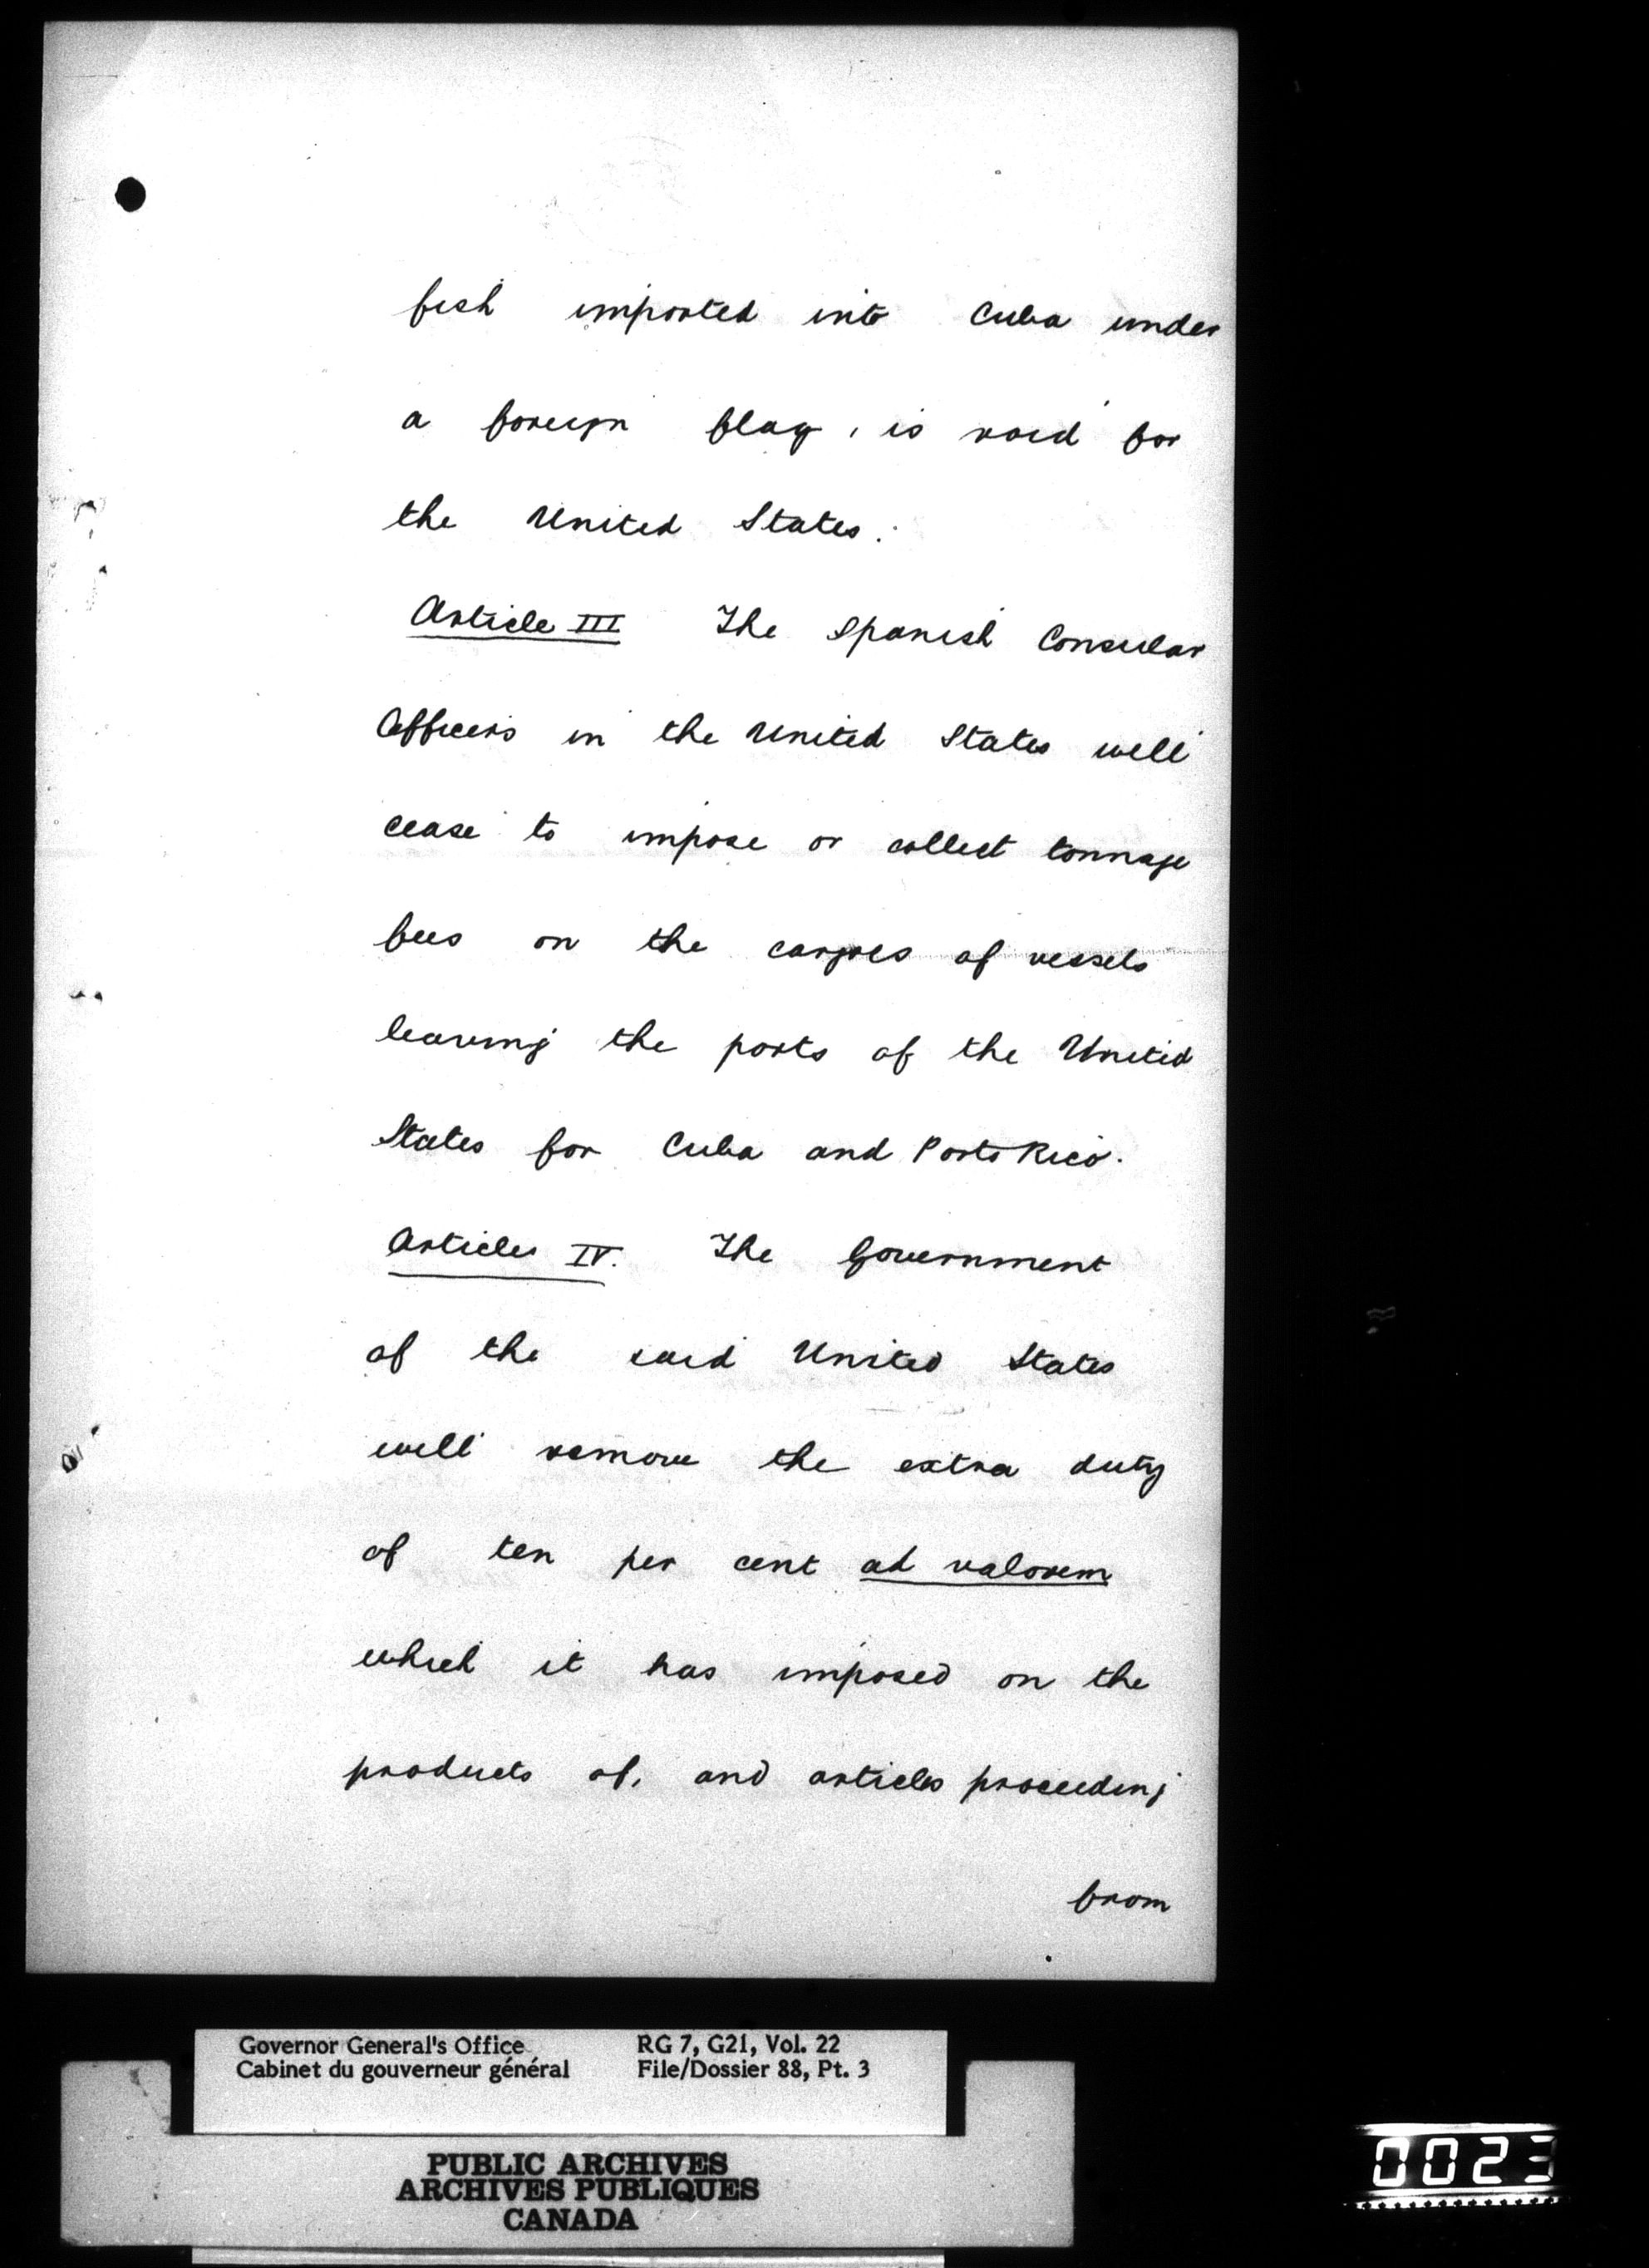 fish imported into Cuba under
a foreign flag, is void for
the United States.
Article III The Spanish Consular
Officers in the United States will
cease to impose or collect tonnage
fees on the cargoes of vessels
leaving the ports of the United
States for Cuba and Porto Rico.
Article IV. The Government
of the said United States
will remove the extra duty
of ten per cent ad valorem
which it has imposed on the
products of, and articles proceeding
from
Governor General's Office RG 7, G21, Vol. 22
Cabinet du gouverneur général File/Dossier 88, Pt. 3
PUBLIC ARCHIVES
ARCHIVES PUBLIQUES
CANADA
0023